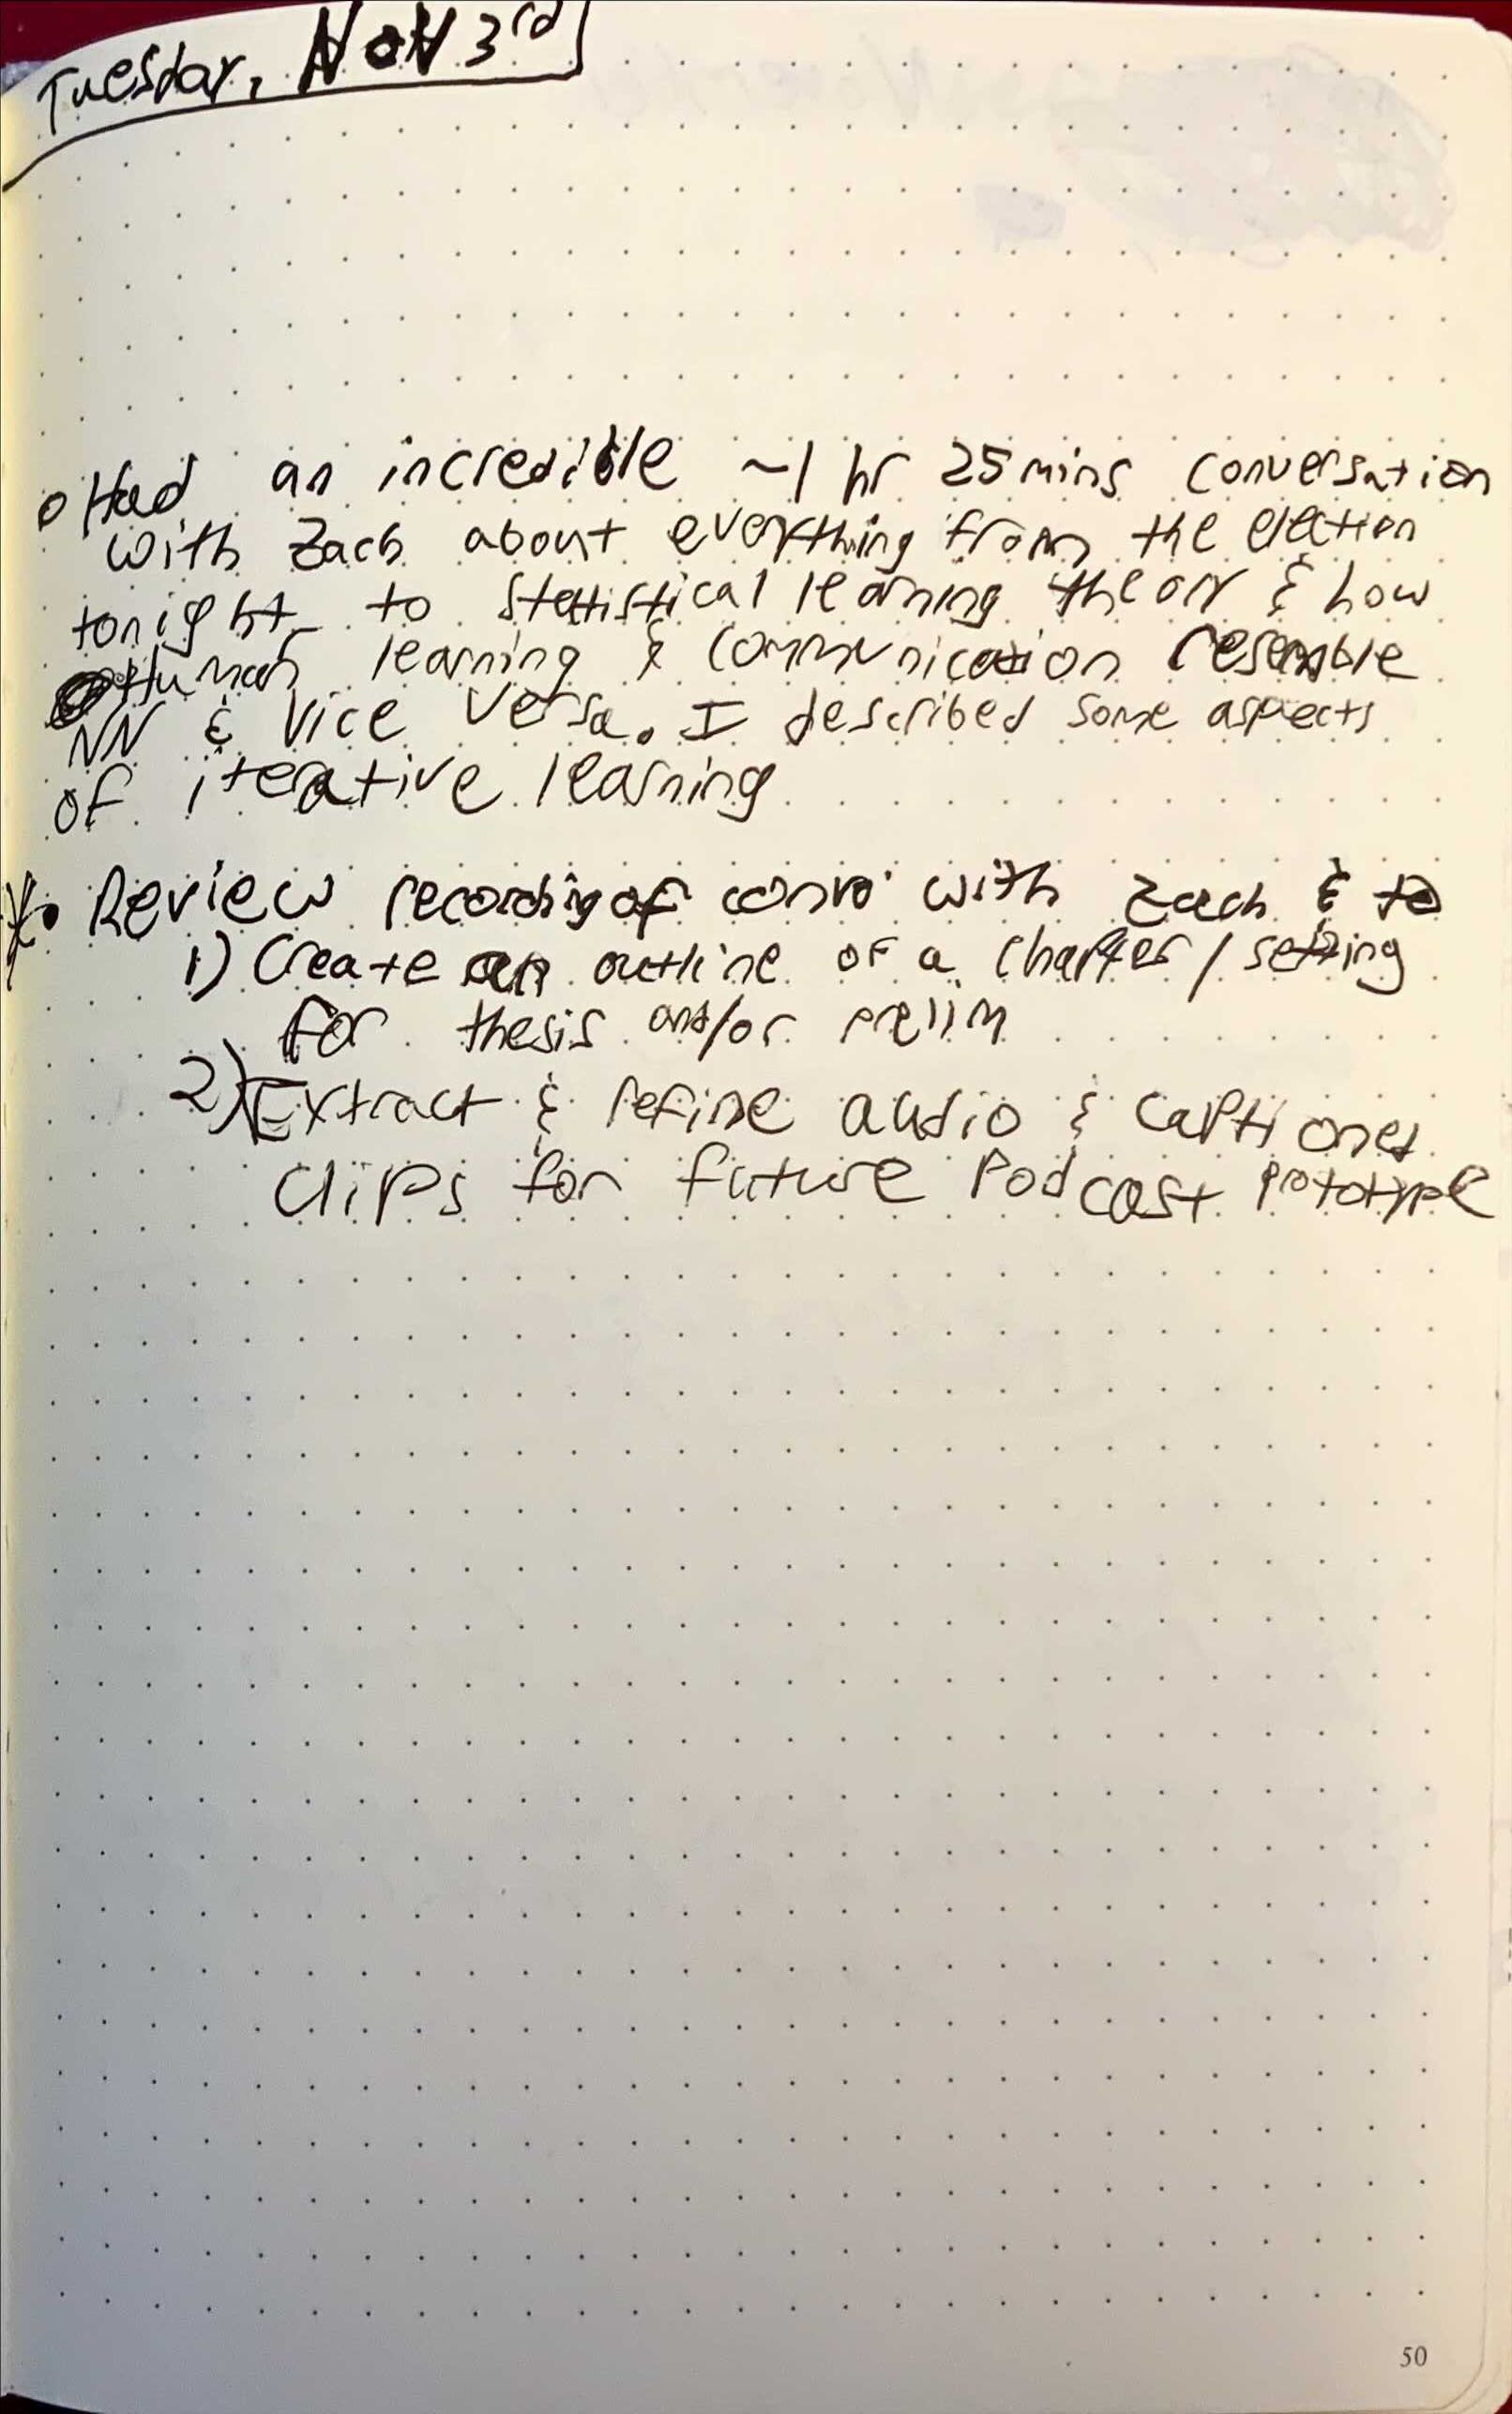 Tuesday, Nov 3rd
o Had an incredible ~1 hr 25 mins conversation
with Zach about everything from the election
tonight to statistical learning theory & how
Human learning & communication resemble
NN & vice versa. I described some aspects
of iterative learning
* • Review recording of convo with Zach & to
1) Create an outline of a chapter / setting
for thesis and/or prelim
2) Extract & refine audio & captioned
clips for future Podcast prototype
50